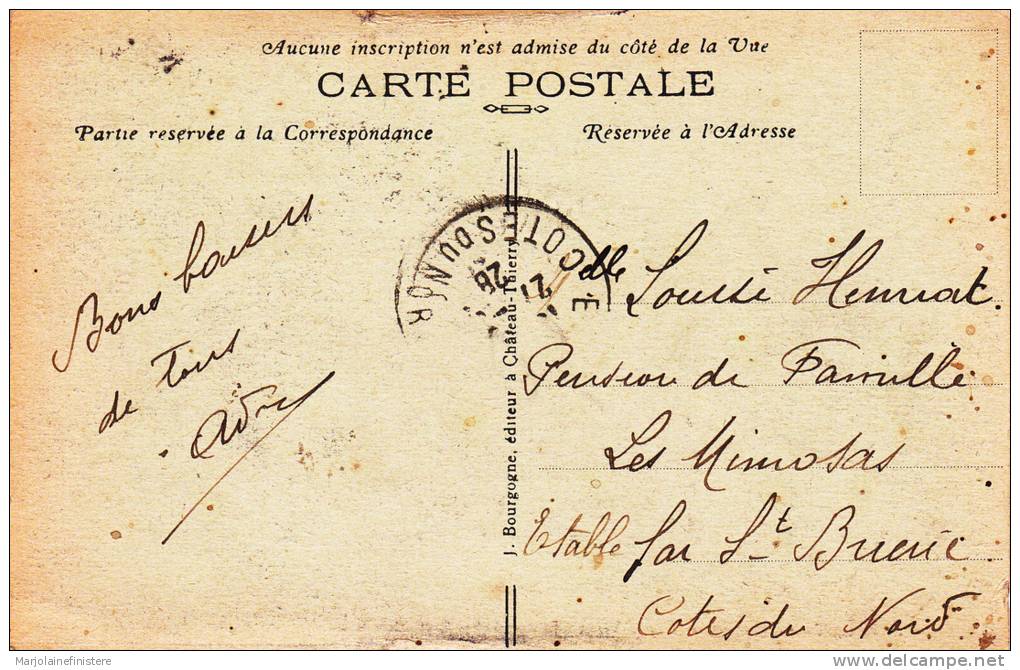 Aucune inscription n'est admise du côté de la Vue
CARTE POSTALE
Partie reservée à la Correspondance
Réservée à l'Adresse
Bons baisers
de Tous
COTES DU NOR
21
26
J. Bourgogne, éditeur à Château-Thierry
elle Louise Henriat.
Pension de Famille
Les Mimosas
Etable par St Brieuc
Cotes du Nord
Marjolainefinistere
www.delcampe.net